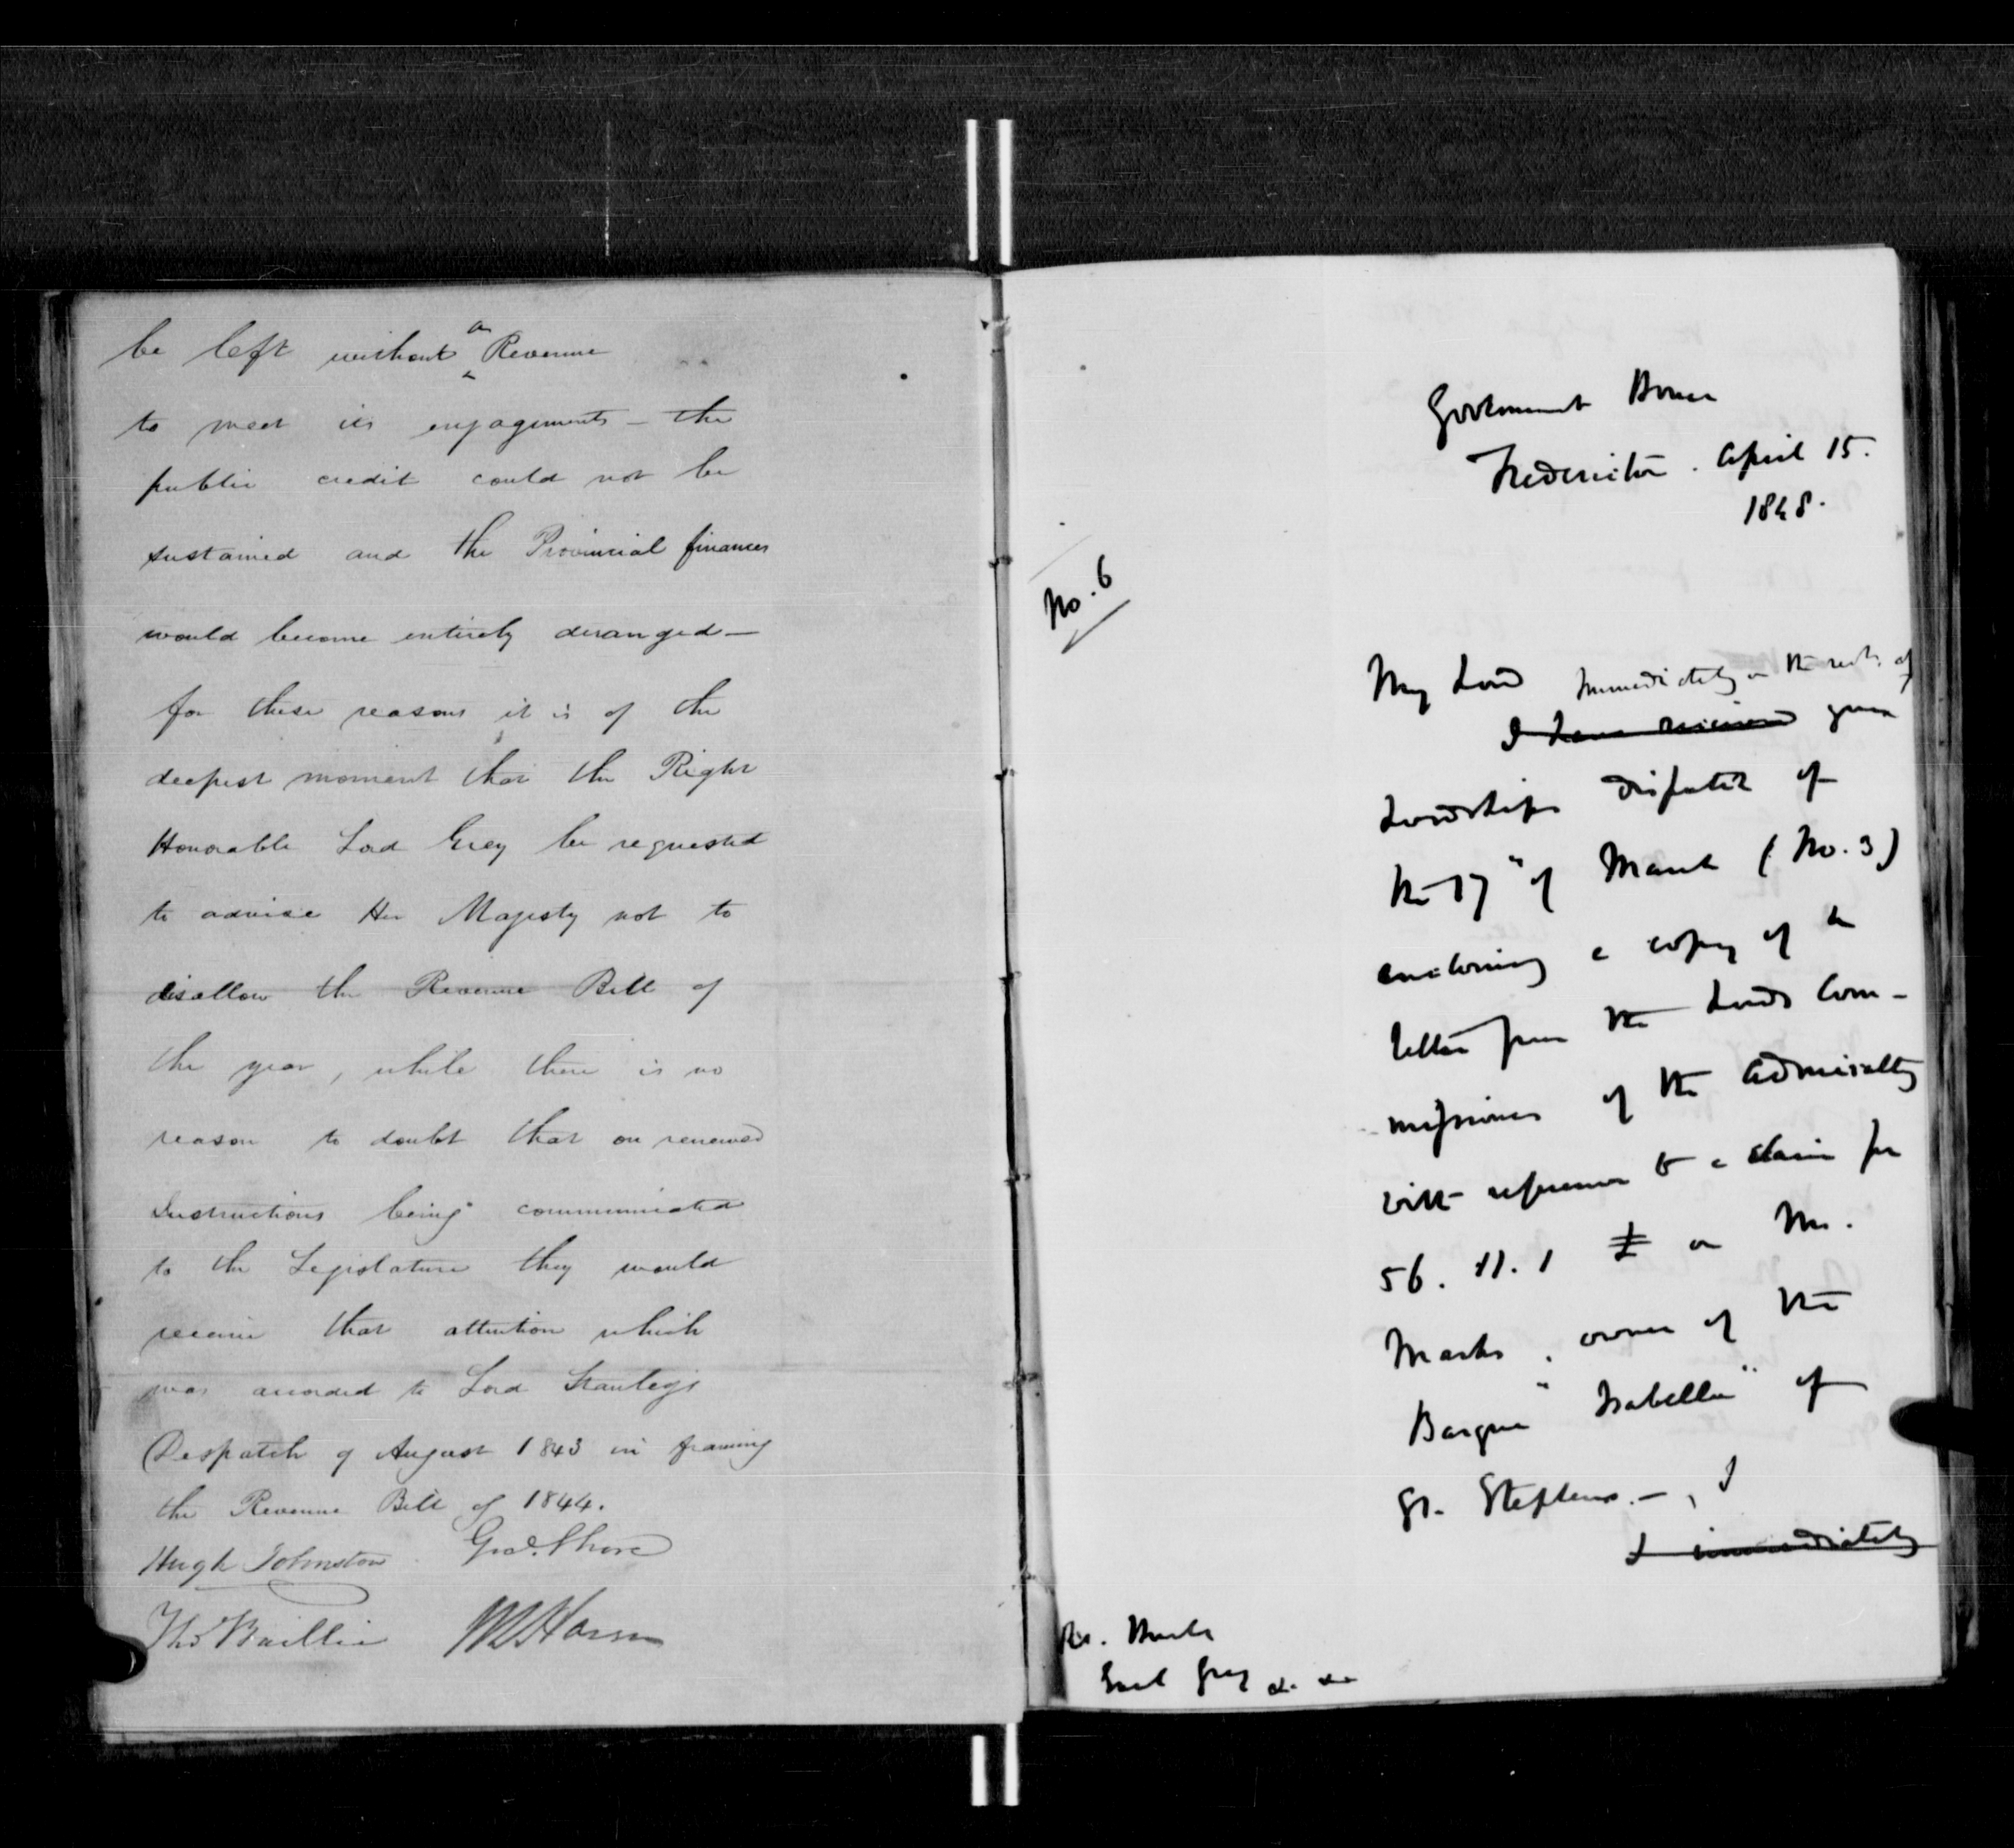 be left without a Revenue
to meet its engagements — the
public credit could not be
sustained and the Provincial finances
would become entirely deranged —
for these reasons it is of the
deepest moment that the Right
Honorable Lord Grey be requested
to advise Her Majesty not to
disallow the Revenue Bill of
the year, while there is no
reason to doubt that on renewed
Instructions being communicated
to the Legislature they would
receive that attention which
was accorded to Lord Stanley's
Despatch of August 1843 in framing
the Revenue Bill of 1844.
Hugh Johnston Geo. Shore
Thos Baillie
Government House
Fredericton. April 15.
1848.
No. 6
My Lord Immediately on the rect. of
I have received your
Lordships dispatch of
the 17" of March (No. 3)
enclosing a copy of a
letter from the Lords Com-
-missioners of the Admiralty
with reference to a claim for
56. 11. 1 £ on Mr.
Marks, owner of the
Barque "Isabella" of
St. Stephens. —, I
I immediately
Earl Grey &. &c